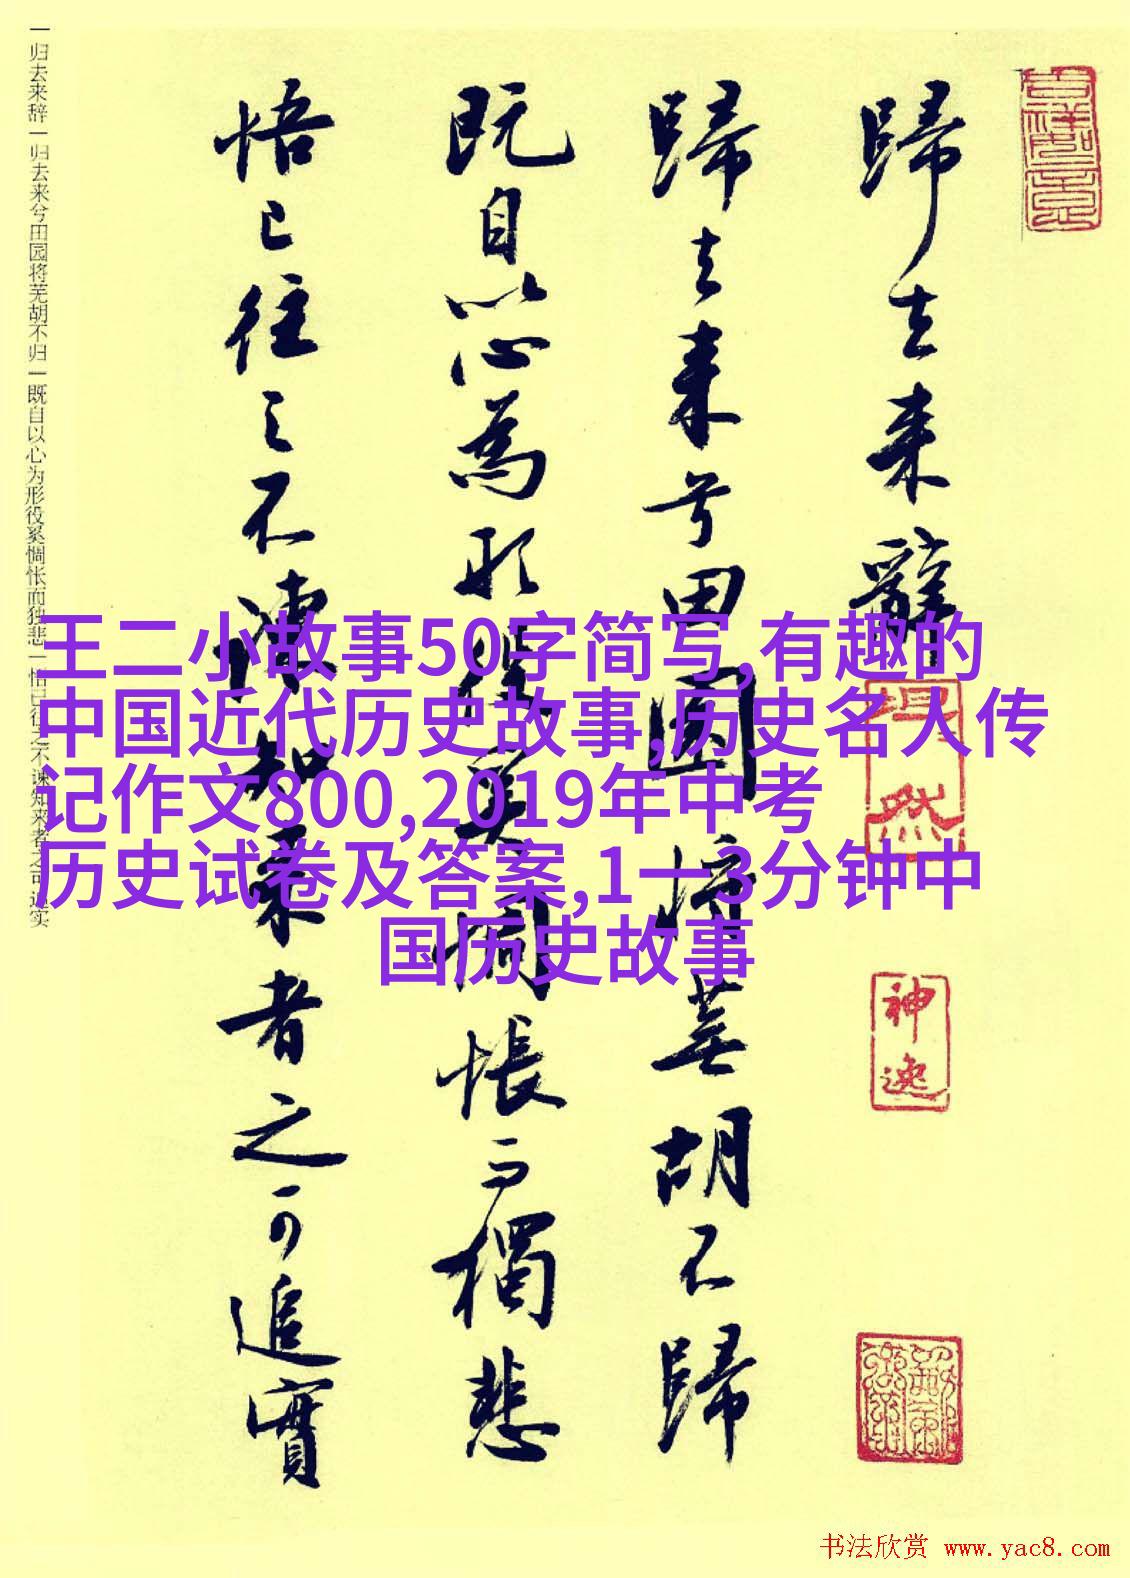 歸去来辭
歸去来兮田園将蕪胡不歸
既自以心為形役奚惆悵而獨悲
悟已往之不諫知来者之可追實
坦然
神逸
一归去来辞一归去来兮田园将芜胡不归一既自以心为形役奚惆怅而独悲一悟已往之不谏知来者之可追实
王二小故事50字简写,有趣的
中国近代历史故事,历史名人传
记作文800,2019年中考
历史试卷及答案,1一3分钟中
国历史故事
书法欣赏 www.yac8.com